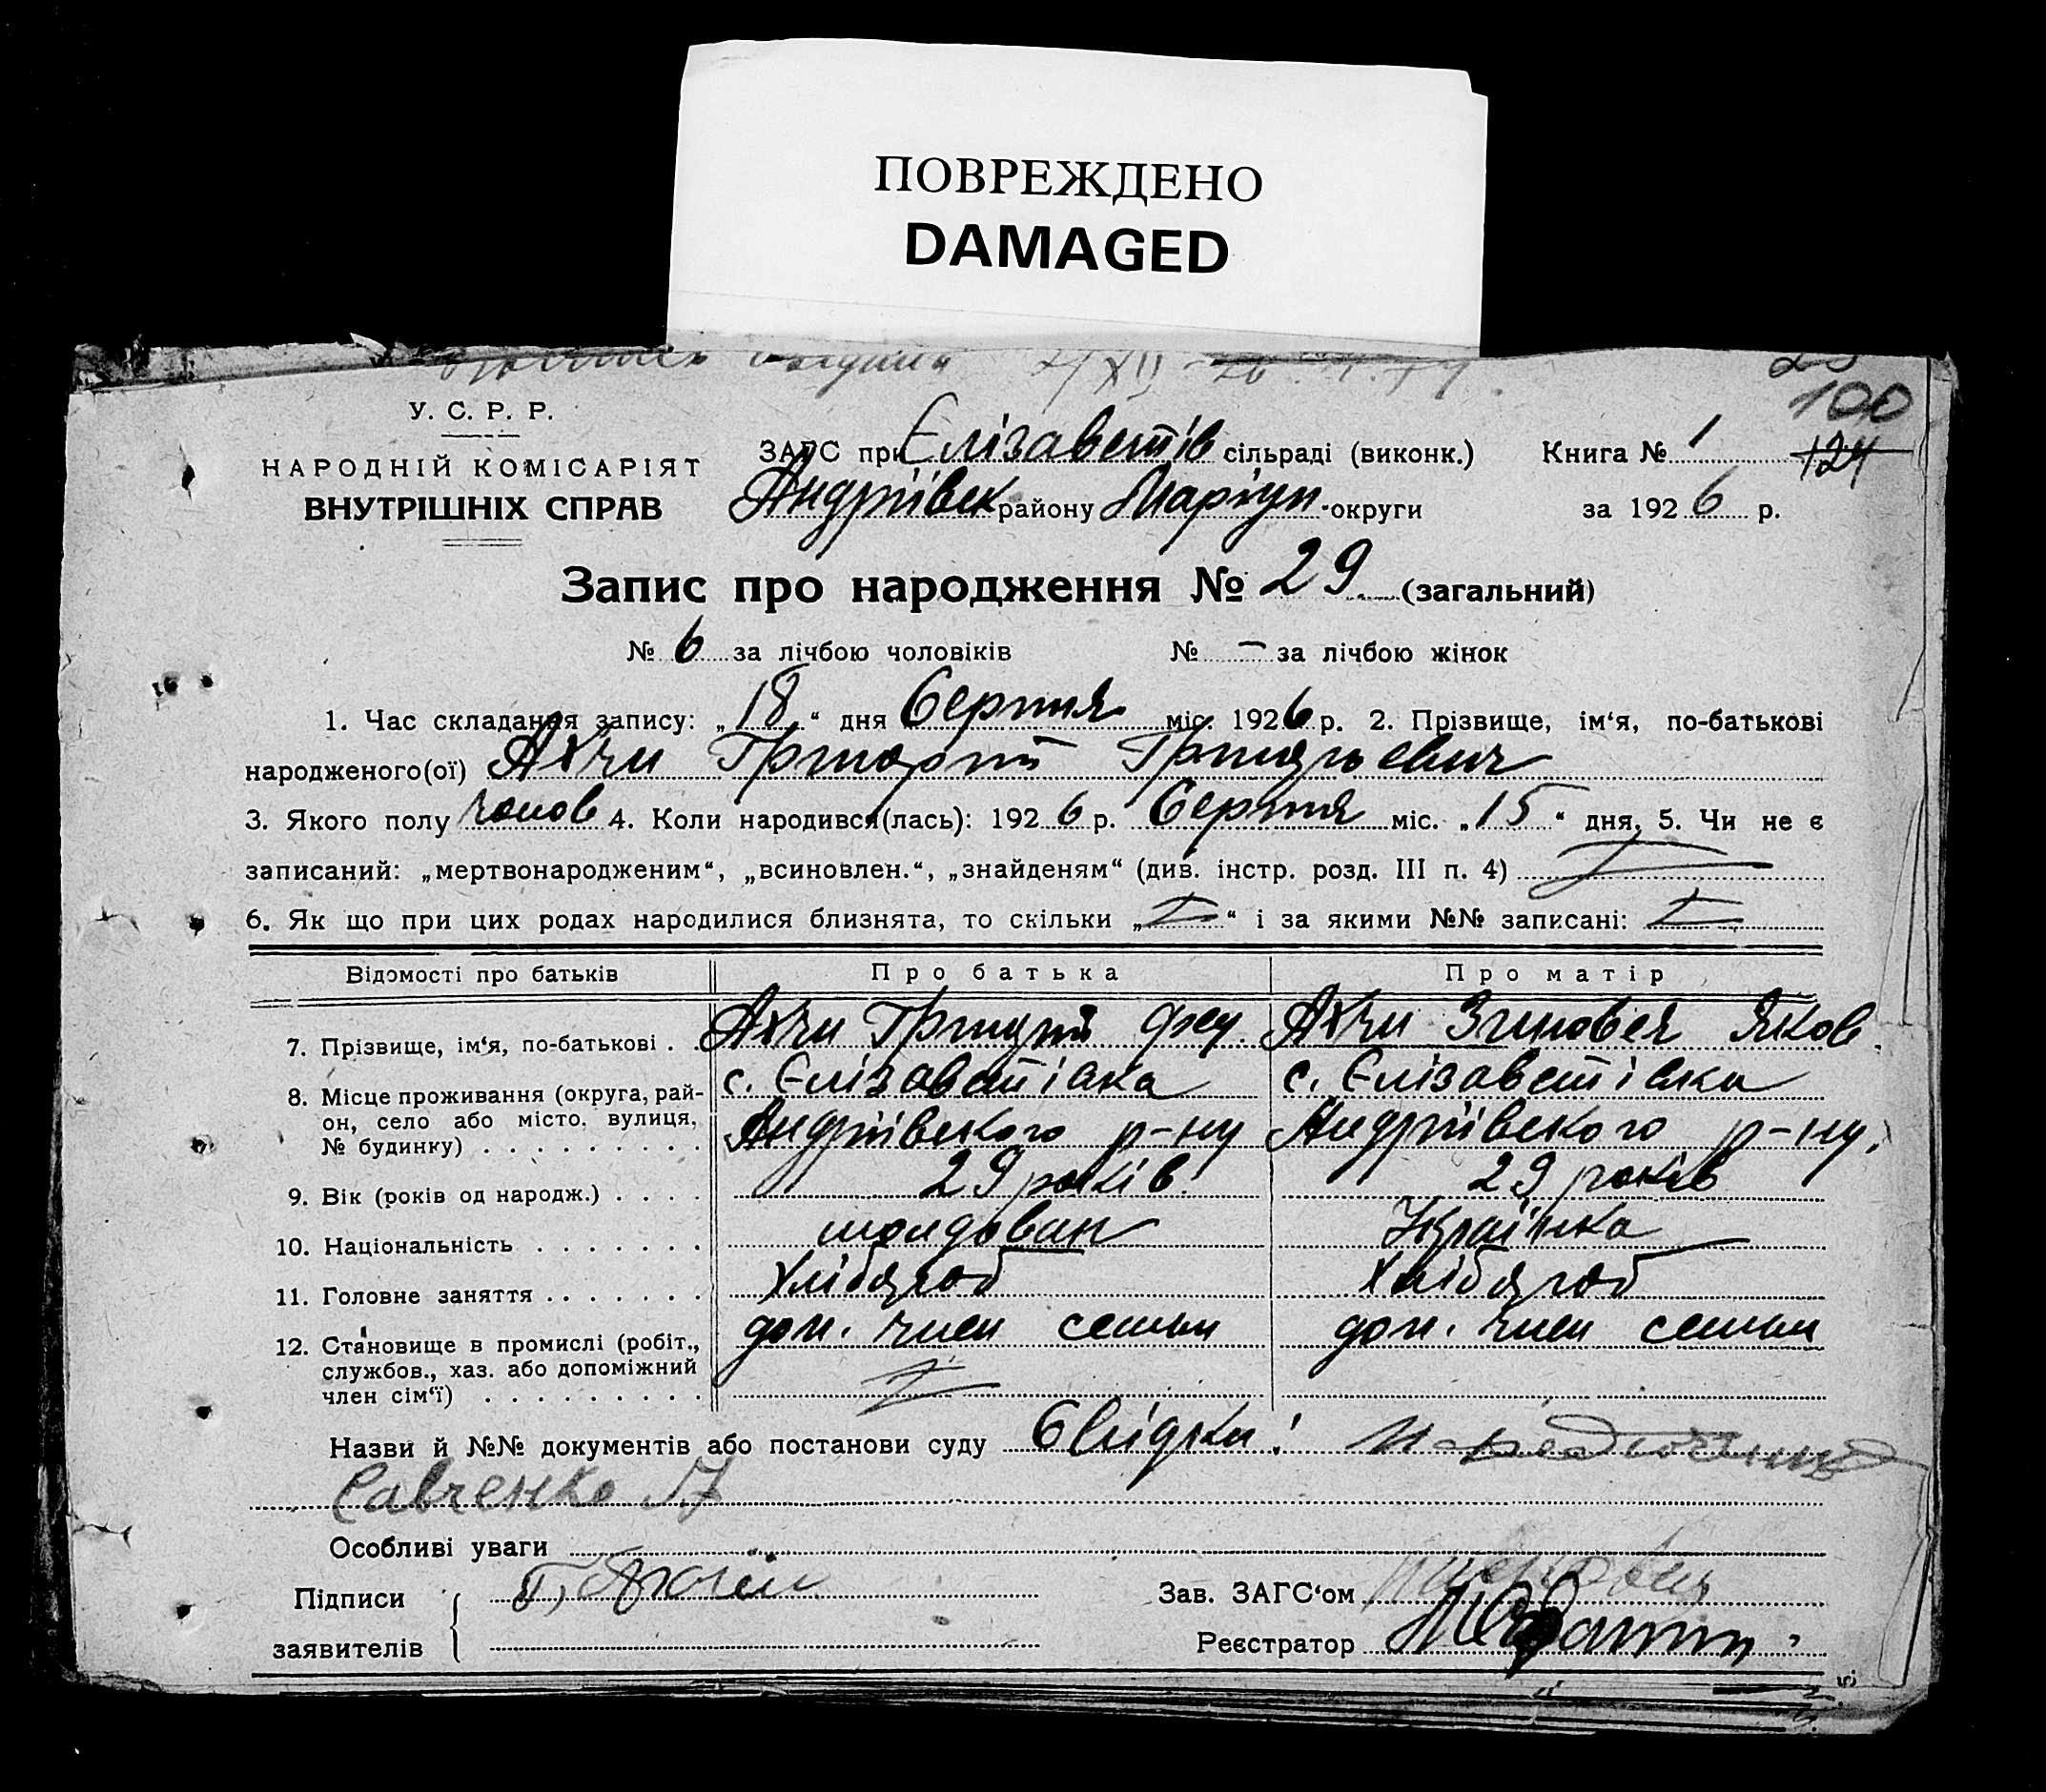 ПОВРЕЖДЕНО
DAMAGED
100
У. С. Р. Р.
НАРОДНІЙ КОМІСАРІЯТ
ВНУТРІШНІХ СПРАВ
ЗАГС при Єлізаветів сільраді (виконк.) Книга № 1 124
Андріївск району Маріуп. округи за 1926 р.
Запис про народження № 29 (загальний)
№ 6 за лічбою чоловіків № – за лічбою жінок
1. Час складання запису: „18“ дня Серпня міс. 1926 р. 2. Прізвище, ім‘я, по-батькові
народженого(ої) Ахчи Григорій Григорьевич
3. Якого полу чолов 4. Коли народився(лась): 1926 р. Серпня міс. „15“ дня, 5. Чи не є
записаний: „мертвонародженим“, „всиновлен.“, „знайденям“ (див. інстр. розд. III п. 4)
6. Як що при цих родах народилися близнята, то скільки „ “ і за якими №№ записані:
Відомості про батьків Про батька Про матір
7. Прізвище, ім‘я, по-батькові . . Ахчи Григорій Ахчи Зиновея Яков.
8. Місце проживання (округа, рай- с. Єлізаветівка с. Єлізаветівка
он, село або місто, вулиця,
№ будинку) . . . . . . . . . Андріївского р-ну Андріївского р-ну.
9. Вік (років од народж.) . . . . 29 років 29 років
10. Національність . . . . . . . молдован Українка
11. Головне заняття . . . . . . . Хлібороб Хлібороб
12. Становище в промислі (робіт., доп. член семьи доп. член семьи
службов., хаз. або допоміжний
член сім‘ї) . . . . . . . . .
Назви й №№ документів або постанови суду Свідки:
Савченко
Особливі уваги
Підписи Зав. ЗАГС‘ом
заявителів Реєстратор